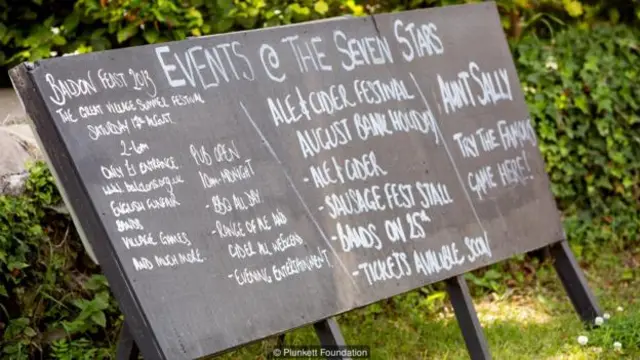 Events @ The Seven Stars
Baldon Feast 2013
The Great Village Summer Festival
Saturday 17th August
2-6pm
Only £1 Entrance
English Funfair
Bands
Village Games
and much more.
Pub open
10am-midnight
- BBQ all day
- Range of ale and
cider all weekend
- Evening Entertainment
Ale & Cider Festival
August Bank Holiday
- Ale & Cider
- Sausage Fest Stall
- Bands on 25th
- Tickets Available Soon
Aunt Sally
Try the famous
game here!
© Plunkett Foundation